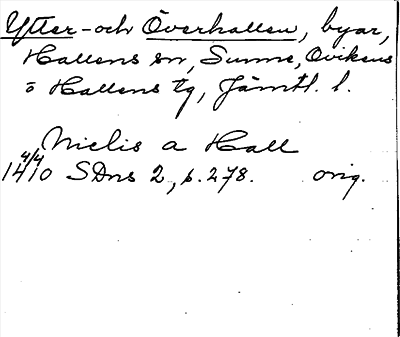 Ytter- och Överhallen, byar,
Hallens sn, Sunne, Ovikens
o Hallens tg, Jämtl. l.
Niclis a Hall
4/4
1410 SDns 2, s. 278. orig.